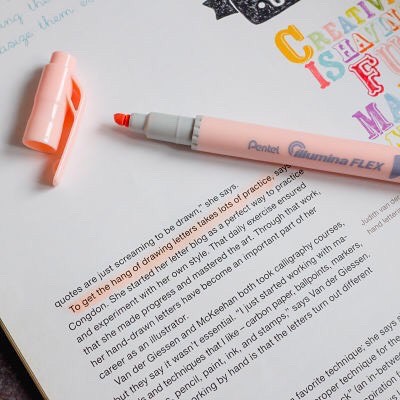 ing the
asize them each
CREATIV
IS HAVIN
FU
MA
Pentel illumina FLEX
quotes are just screaming to be drawn," she says.
To get the hang of drawing letters takes lots of practice, says
Congdon. She started her letter blog as a perfect way to practice
and experiment with her own style. That daily exercise ensured
that she made progress and mastered the art. Through that work,
her hand-drawn letters have become an important part of her
career as an illustrator.
Van der Giessen and McKeehan both took calligraphy courses,
but they say it wasn't essential. "I just started working with ma-
and techniques that I like – carbon paper, ballpoints, markers,
pencil, paint, ink, and stamps," says Van der Giessen.
working by hand is that the letters turn out different
Judith van der
hand letterin
favorite technique: she says
improper technique for the
back" (an in-betwe